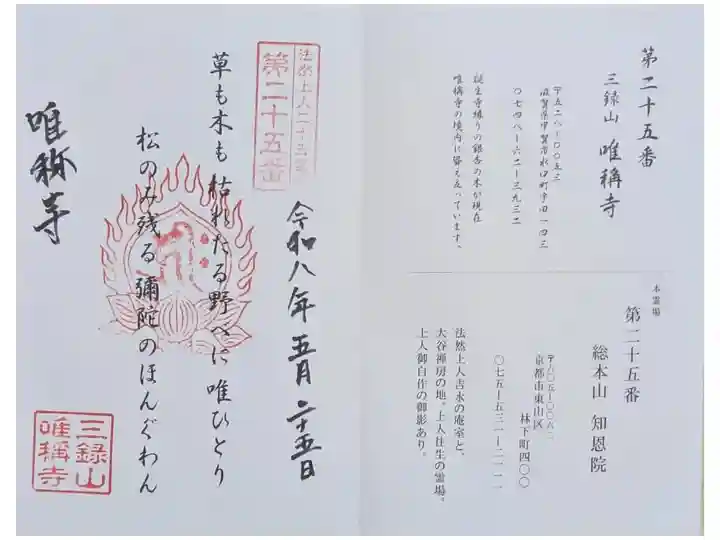 第二十五番
三録山 唯稱寺
〒五二八－〇〇五三
滋賀県甲賀市水口町宇田一四三
〇七四八－六二－三九三二
誕生寺縁りの銀杏の木が現在
唯稱寺の境内に聳え立っています。
本霊場
第二十五番
総本山 知恩院
〒六〇五－〇〇六二
京都市東山区
林下町四〇〇
〇七五－五三一－二一一一
法然上人吉水の庵室と、
大谷禅房の地。上人往生の霊場。
上人御自作の御影あり。
法然上人二十五霊
第二十五番
令和八年五月二十五日
草も木も枯れたる野べに唯ひとり
松のみ残る彌陀のほんぐわん
唯称寺
三録山
唯稱寺